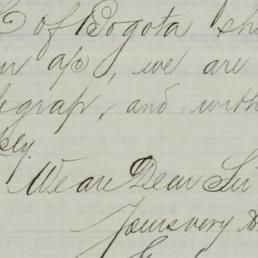 of Bogota sh
a/o, we are
legraf, and with
ply.
We are Dear Sir
Yours very